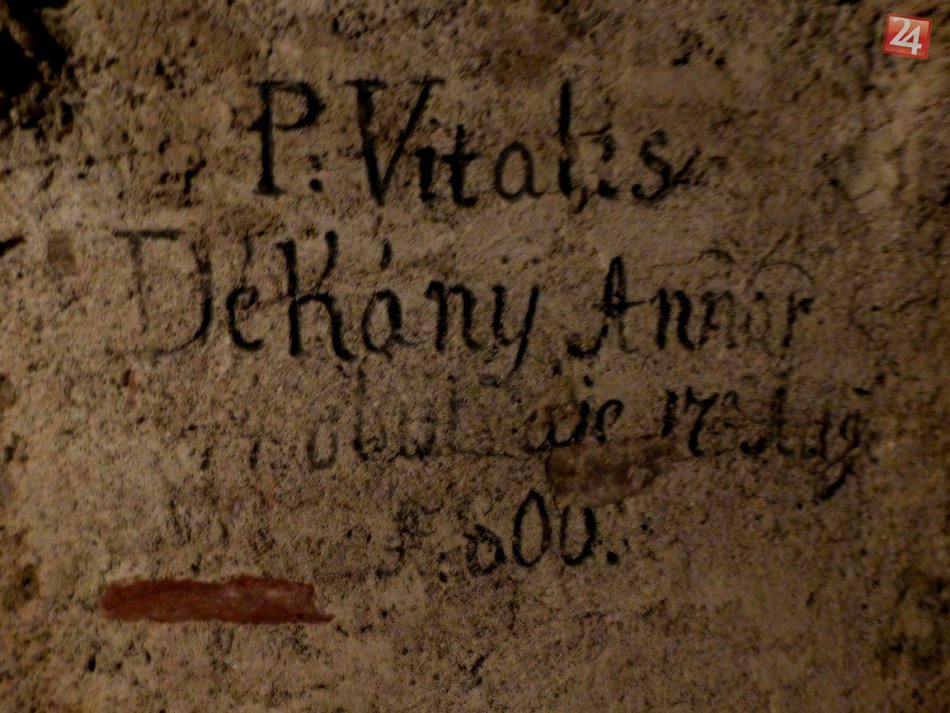 24
P. Vitalis
Dékány Annor
die 17 Aug.
1800.